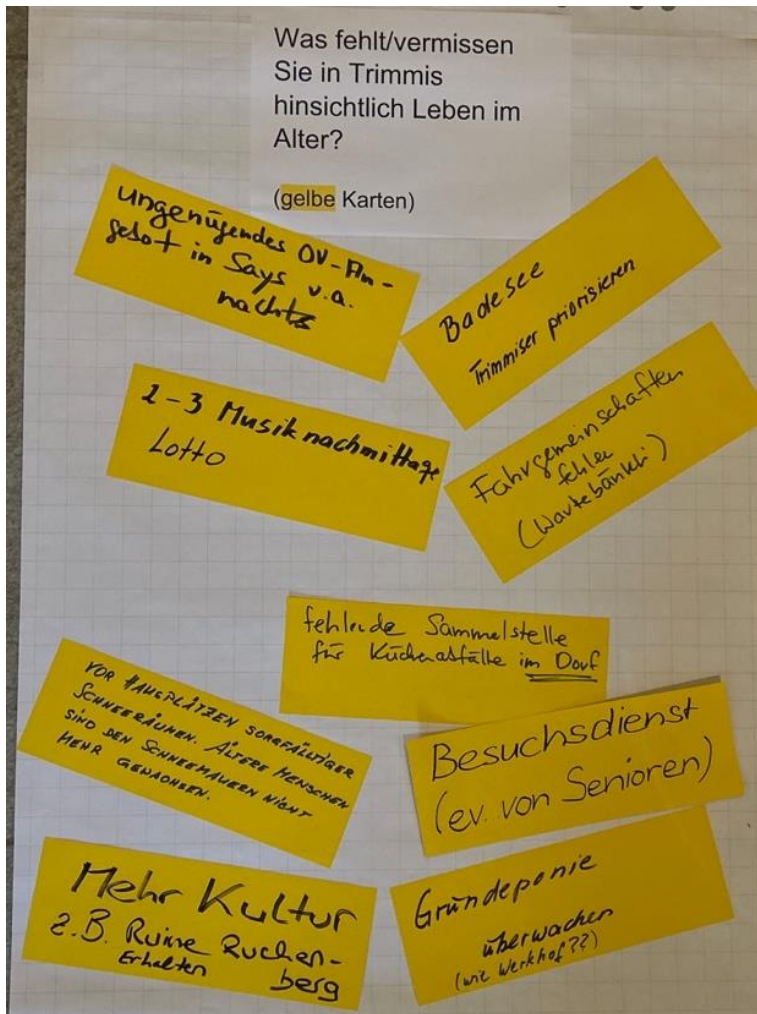 Was fehlt/vermissen
Sie in Trimmis
hinsichtlich Leben im
Alter?
(gelbe Karten)
ungenügendes ÖV-An-
gebot in Says v.a.
nachts
Badesee
Trimmiser priorisieren
2-3 Musiknachmittage
Lotto
Fahrgemeinschaften
fehlen
(Wartebänkli)
fehlende Sammelstelle
für Küchenabfälle im Dorf
VOR HAUSPLÄTZEN SORGFÄLTIGER
SCHNEERÄUMEN. ÄLTERE MENSCHEN
SIND DEN SCHNEEMAUERN NICHT
MEHR GEWACHSEN.
Besuchsdienst
(ev. von Senioren)
Mehr Kultur
z.B. Ruine Ruchen-
berg
Erhalten
Gründeponie
überwachen
(wie Werkhof??)